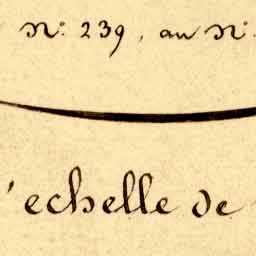 N°: 239, au N°.
'echelle de